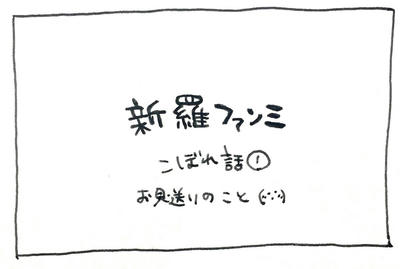 新羅ファンミ
こぼれ話①
お見送りのこと (ง˙˘˙)ว